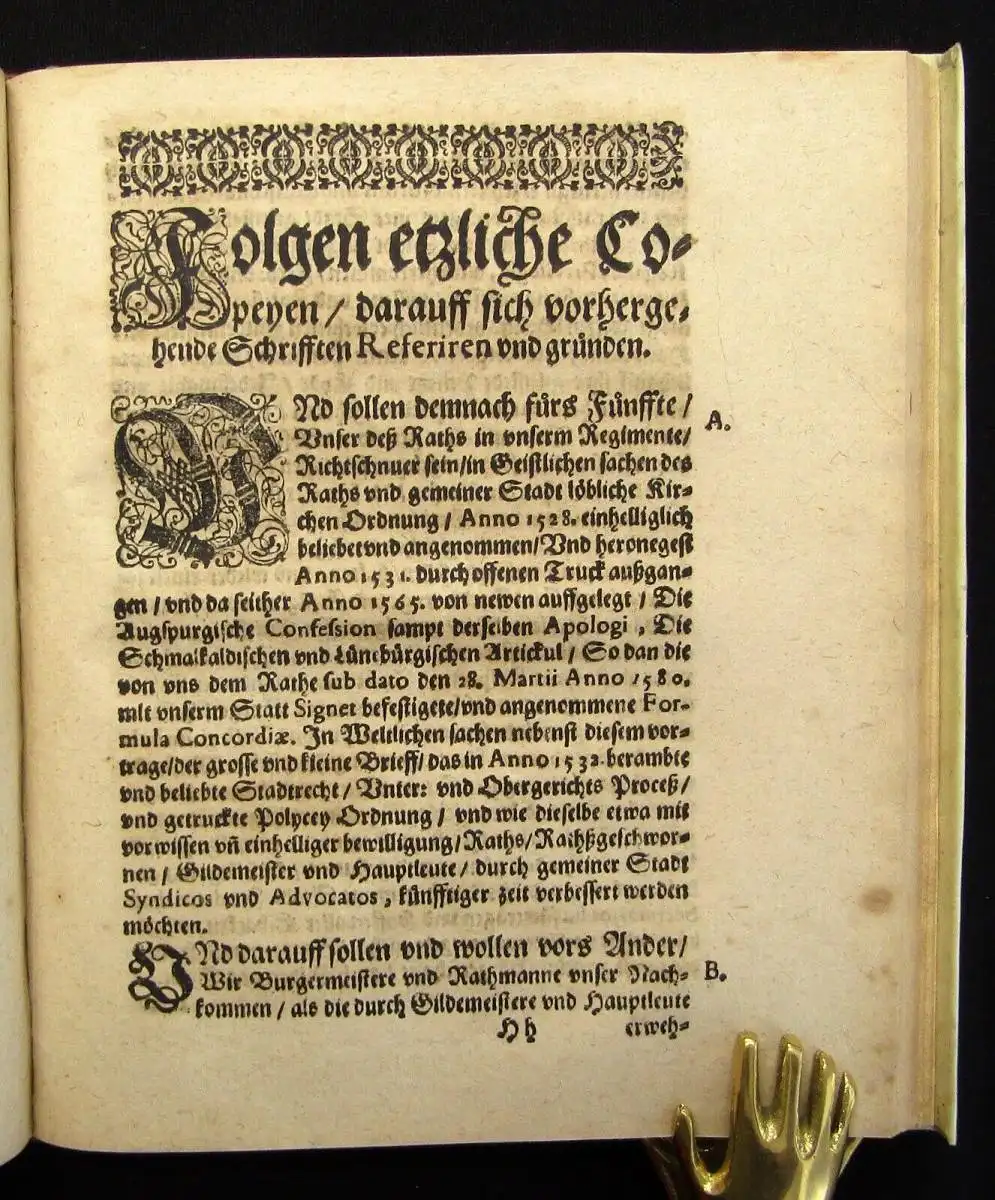 Folgen etzliche Co-
peyen / darauff sich vorherge-
hende Schrifften Referiren vnd gründen.
VNd sollen demnach fürs Fünffte /
A.
Vnser deß Raths in vnserm Regimente/
Richtschnuer sein/in Geistlichen sachen des
Raths vnd gemeiner Stadt löbliche Kir-
chen Ordnung / Anno 1528. einhelliglich
beliebet vnd angenommen/Vnd heronegest
Anno 1531. durch offenen Truck außgan-
gen / vnd da seither Anno 1565. von newen auffgelegt / Die
Augspurgische Confession sampt derselben Apologi , Die
Schmalkaldischen vnd Lüneburgischen Artickul / So dan die
von vns dem Rathe sub dato den 28. Martii Anno 1580.
mit vnserm Statt Signet befestigete/vnd angenommene For-
mula Concordiæ. In Weltlichen sachen nebenst diesem vor-
trage/der grosse vnd kleine Brieff/ das in Anno 1532. berambte
vnd beliebte Stadtrecht / Vnter: vnd Obergerichts Proceß/
vnd getruckte Polycey Ordnung / vnd wie dieselbe etwa mit
vorwissen vn̄ einhelliger bewilligung/Raths/Rathßgeschwor-
nen / Gildemeister vnd Hauptleute / durch gemeiner Stadt
Syndicos vnd Advocatos , künfftiger zeit verbessert werden
möchten.
VNd darauff sollen vnd wollen vors Ander/
Wir Burgermeistere vnd Rathmanne vnser Nach-
B.
kommen / als die durch Gildemeistere vnd Hauptleute
Hh erweh-